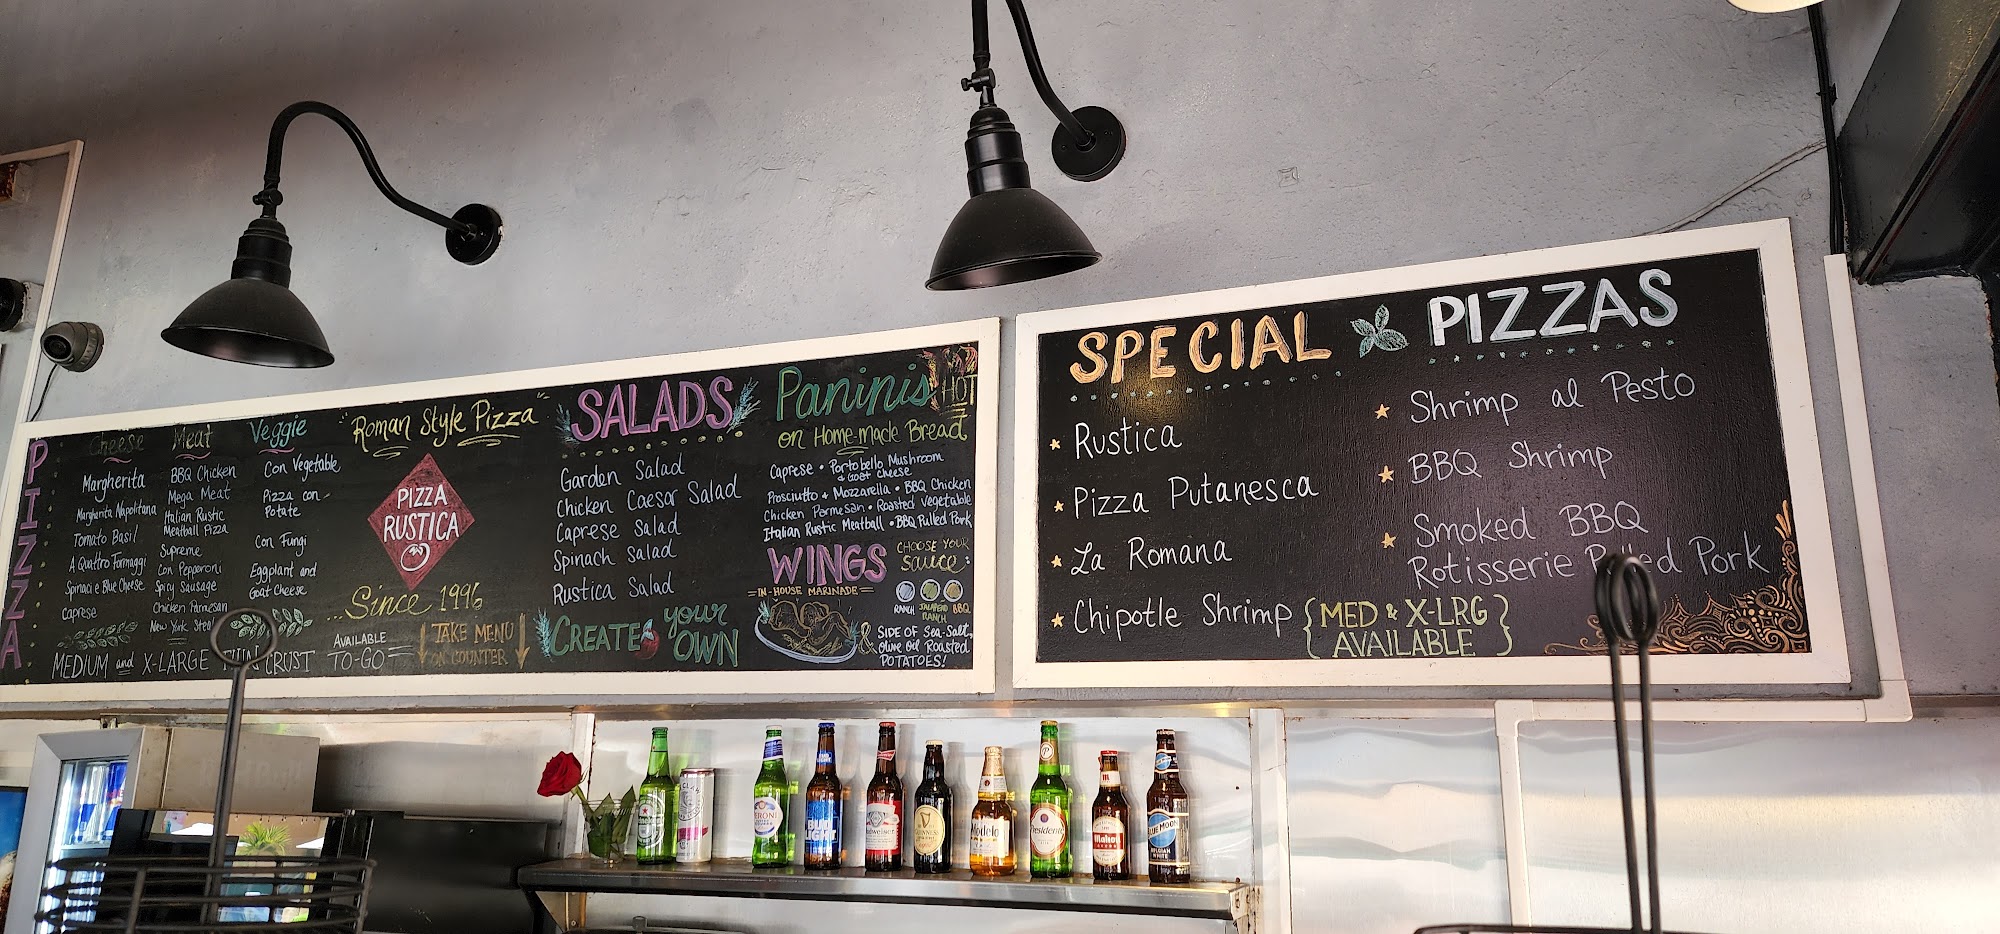 PIZZA
Cheese
Margherita
Margherita Napolitana
Tomato Basil
A Quattro Formaggi
Spinaci e Blue Cheese
Caprese
Meat
BBQ Chicken
Mega Meat
Italian Rustic
Meatball Pizza
Supreme
Con Pepperoni
Spicy Sausage
Chicken Parmesan
New York Steak
Veggie
Con Vegetable
Pizza con
Potate
Con Fungi
Eggplant and
Goat Cheese
MEDIUM and X-LARGE THIN CRUST
"Roman Style Pizza"
PIZZA
RUSTICA
Since 1996
AVAILABLE
TO-GO
TAKE MENU
ON COUNTER
SALADS
Garden Salad
Chicken Caesar Salad
Caprese Salad
Spinach Salad
Rustica Salad
CREATE your
OWN
Paninis HOT
on Home-made Bread
Caprese • Portobello Mushroom
& Goat Cheese
Prosciutto & Mozzarella • BBQ Chicken
Chicken Parmesan • Roasted Vegetable
Italian Rustic Meatball • BBQ Pulled Pork
WINGS
=IN-HOUSE MARINADE=
CHOOSE YOUR
SAUCE:
RANCH JALAPENO RANCH BBQ
& SIDE OF Sea-Salt,
Olive Oil Roasted
POTATOES!
SPECIAL PIZZAS
Rustica
Pizza Putanesca
La Romana
Chipotle Shrimp
Shrimp al Pesto
BBQ Shrimp
Smoked BBQ
Rotisserie Pulled Pork
{MED & X-LRG}
AVAILABLE
PERONI
BUD
LIGHT
Budweiser
GUINNESS
Modelo
Presidente
Mahou
BLUE MOON
BELGIAN
WHITE